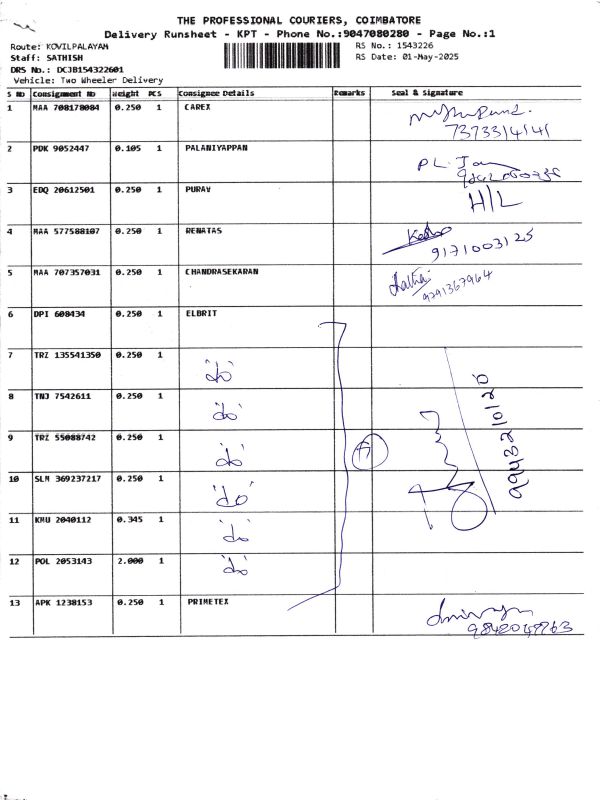 THE PROFESSIONAL COURIERS, COIMBATORE
Delivery Runsheet - KPT - Phone No.:9047080280 - Page No.:1
Route: KOVILPALAYAM RS No.: 1543226
Staff: SATHISH RS Date: 01-May-2025
DRS No.: DCJB154322601
Vehicle: Two Wheeler Delivery
S No Consignment No Weight PCS Consignee Details Remarks Seal & Signature
1 MAA 708178084 0.250 1 CAREX
7373314141
2 PDK 9052447 0.105 1 PALANIYAPPAN
PL.
3 EDQ 20612501 0.250 1 PURAV H/L
4 MAA 577588107 0.250 1 RENATAS
9171003125
5 MAA 707357031 0.250 1 CHANDRASEKARAN
9791367964
6 DPI 608434 0.250 1 ELBRIT
7 TRZ 135541350 0.250 1 "do"
8 TNJ 7542611 0.250 1 "do"
9 TRZ 55088742 0.250 1 "do" 7 9943210120
10 SLM 369237217 0.250 1 "do"
11 KMU 2040112 0.345 1 "do"
12 POL 2053143 2.000 1 "do"
13 APK 1238153 0.250 1 PRIMETEX
9842049763